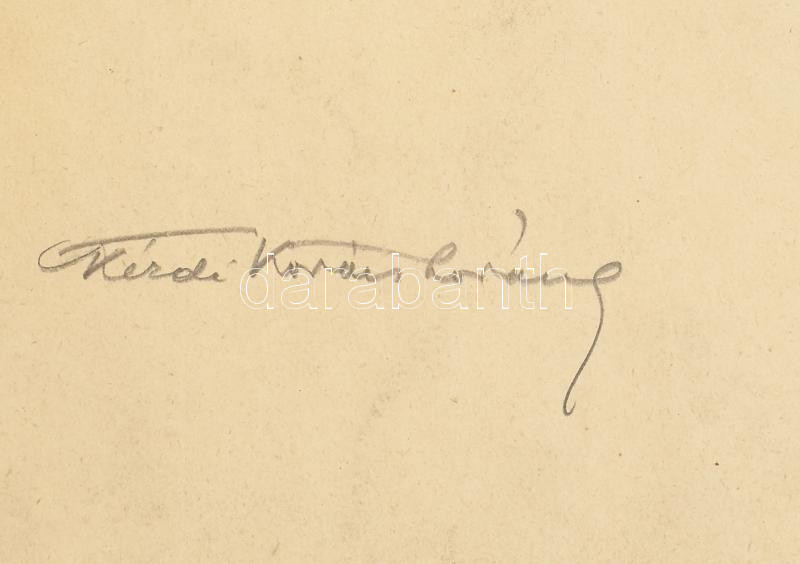 Kérdi Kovács Loránd
darabanth